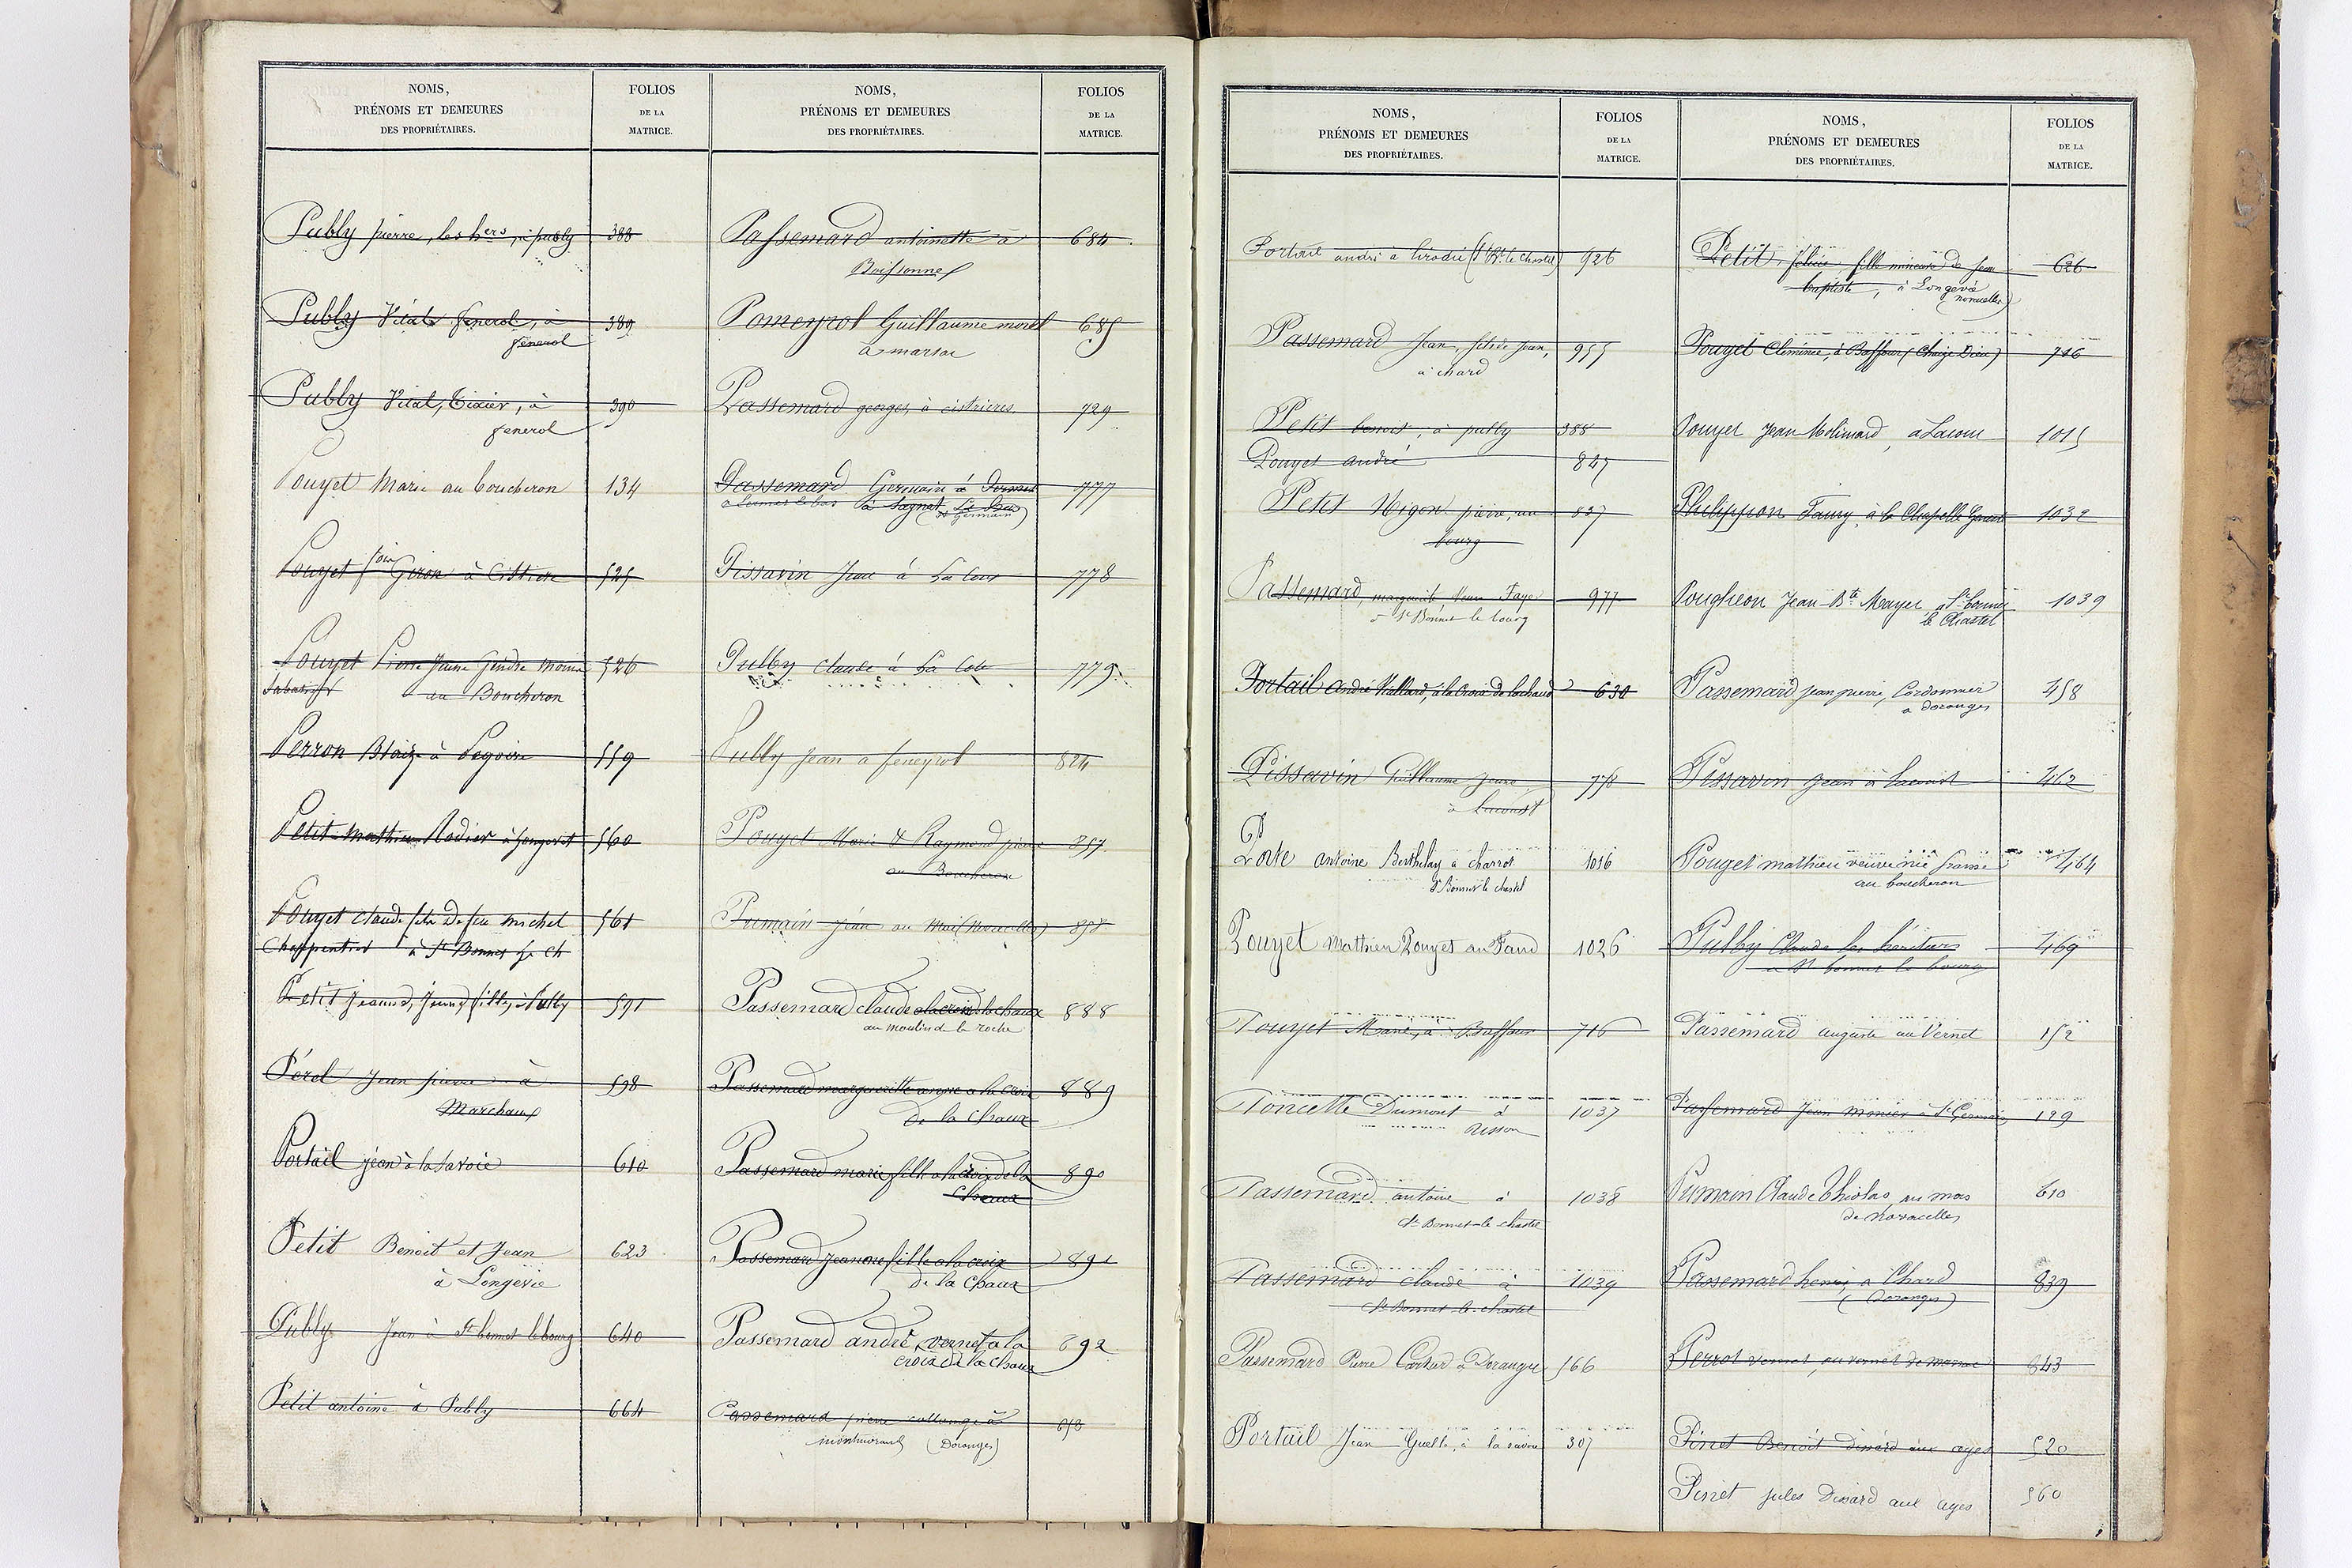 NOMS,
PRÉNOMS ET DEMEURES
DES PROPRIÉTAIRES.
FOLIOS
DE LA
MATRICE.
Publy pierre, les hers, à publy 388
Publy Vital fenerol, à 389
fenerol
Publy Vital, Tixier, à 390
fenerol
Pouyet Marie au boucheron 134
Pouyet Giron à Cistrière 525
Pouyet Pierre Jeune Gendre 526
Sabatier au Boucheron
Perron Blaize à 559
Petit Mathieu Rodier à 560
Pouyet claude fils De feu michel 561
Charpentier à St Bonnet le Ch
Petit Jeanne, Jeune fille, à Publy 591
Perel Jean pierre à 598
Marchaux
Portail jean à la Savoie 610
Petit Benoit et Jean 623
à Longevie
Publy Jean à St bonnet le bourg 640
Petit antoine à Publy 664
NOMS,
PRÉNOMS ET DEMEURES
DES PROPRIÉTAIRES.
FOLIOS
DE LA
MATRICE.
Passemard antoinette à 684
Boissonnel
Pomeyrol Guillaume morel 685
à marsac
Passemard georges, à cistrieres 729
Passemard Germain à 777
(St Germain)
Pissavin Jean à La Cour 778
Publy claude à La 779
Publy jean à feneyrol 824
Pouyet Marie & Raymond pierre 857
au Boucheron
Pumain jean au Mas (Novacelles) 858
Passemard claude à la croix de la chaux 888
au moulin de la roche
Passemard marguerite à la croix 889
de la chaux
Passemard marie fille à la croix de la 890
chaux
Passemard Jeanne fille à la croix 891
de la chaux
Passemard andré vernet à la 892
croix de la chaux
Passemard pierre collange à
montmorand (Doranges)
NOMS,
PRÉNOMS ET DEMEURES
DES PROPRIÉTAIRES.
FOLIOS
DE LA
MATRICE.
Portail andré à (St Bt le Chastel) 926
Passemard Jean, fils de Jean, 955
à chard
Petit benoit, à publy 388
Pouyet andré 847
Petit Migon pierre, au 827
bourg
Passemard, marguerite Veuve Faye 977
à St Bonnet le bourg
Portail André Vallard, à la Croix de lachaud 630
Pissavin Guillaume jeune 778
à Lacourt
Porte antoine Berthelay à charrot 1016
St Bonnet le chastel
Pouyet Mathieu Pouyet au Fand 1026
Pouyet Marie, à Baffour 716
Poncette Dumont à 1037
Aisson
Passemard antoine à 1038
St Bonnet-le chastel
Passemard claude à 1039
St Bonnet le chastel
Passemard Pierre à Doranges 566
Portail Jean à la savoie 307
NOMS,
PRÉNOMS ET DEMEURES
DES PROPRIÉTAIRES.
FOLIOS
DE LA
MATRICE.
Petit, félicie, fille mineure de Jean 626
baptiste, à Longevie
(novacelles)
Pouyet Clémence, à Baffour (Chaize Dieu) 716
Pouyet Jean Molimard, à Lacour 1015
Philippon Faury, à la Chapelle Geneste 1032
Pougheon Jean-Bte Mayer, à St bonnet 1039
le Chastel
Passemard jean pierre, Cordonnier 458
a doranges
Pissavin jean à Lacourt 462
Pouget mathieu veuve née 464
au boucheron
Pubby Claude les héritiers 469
a St bonnet le bourg
Passemard auguste au Vernet 152
Passemard Jean monier à St Germain 129
Pumain Claude Thiolas au mas 610
de novacelles
Passemard henri, a Chard 839
(Doranges)
Perrot vernet, au vernet de 843
Pinet Benoit Dissard aux ayes 520
Pinet jules Dissard aux ayes 560